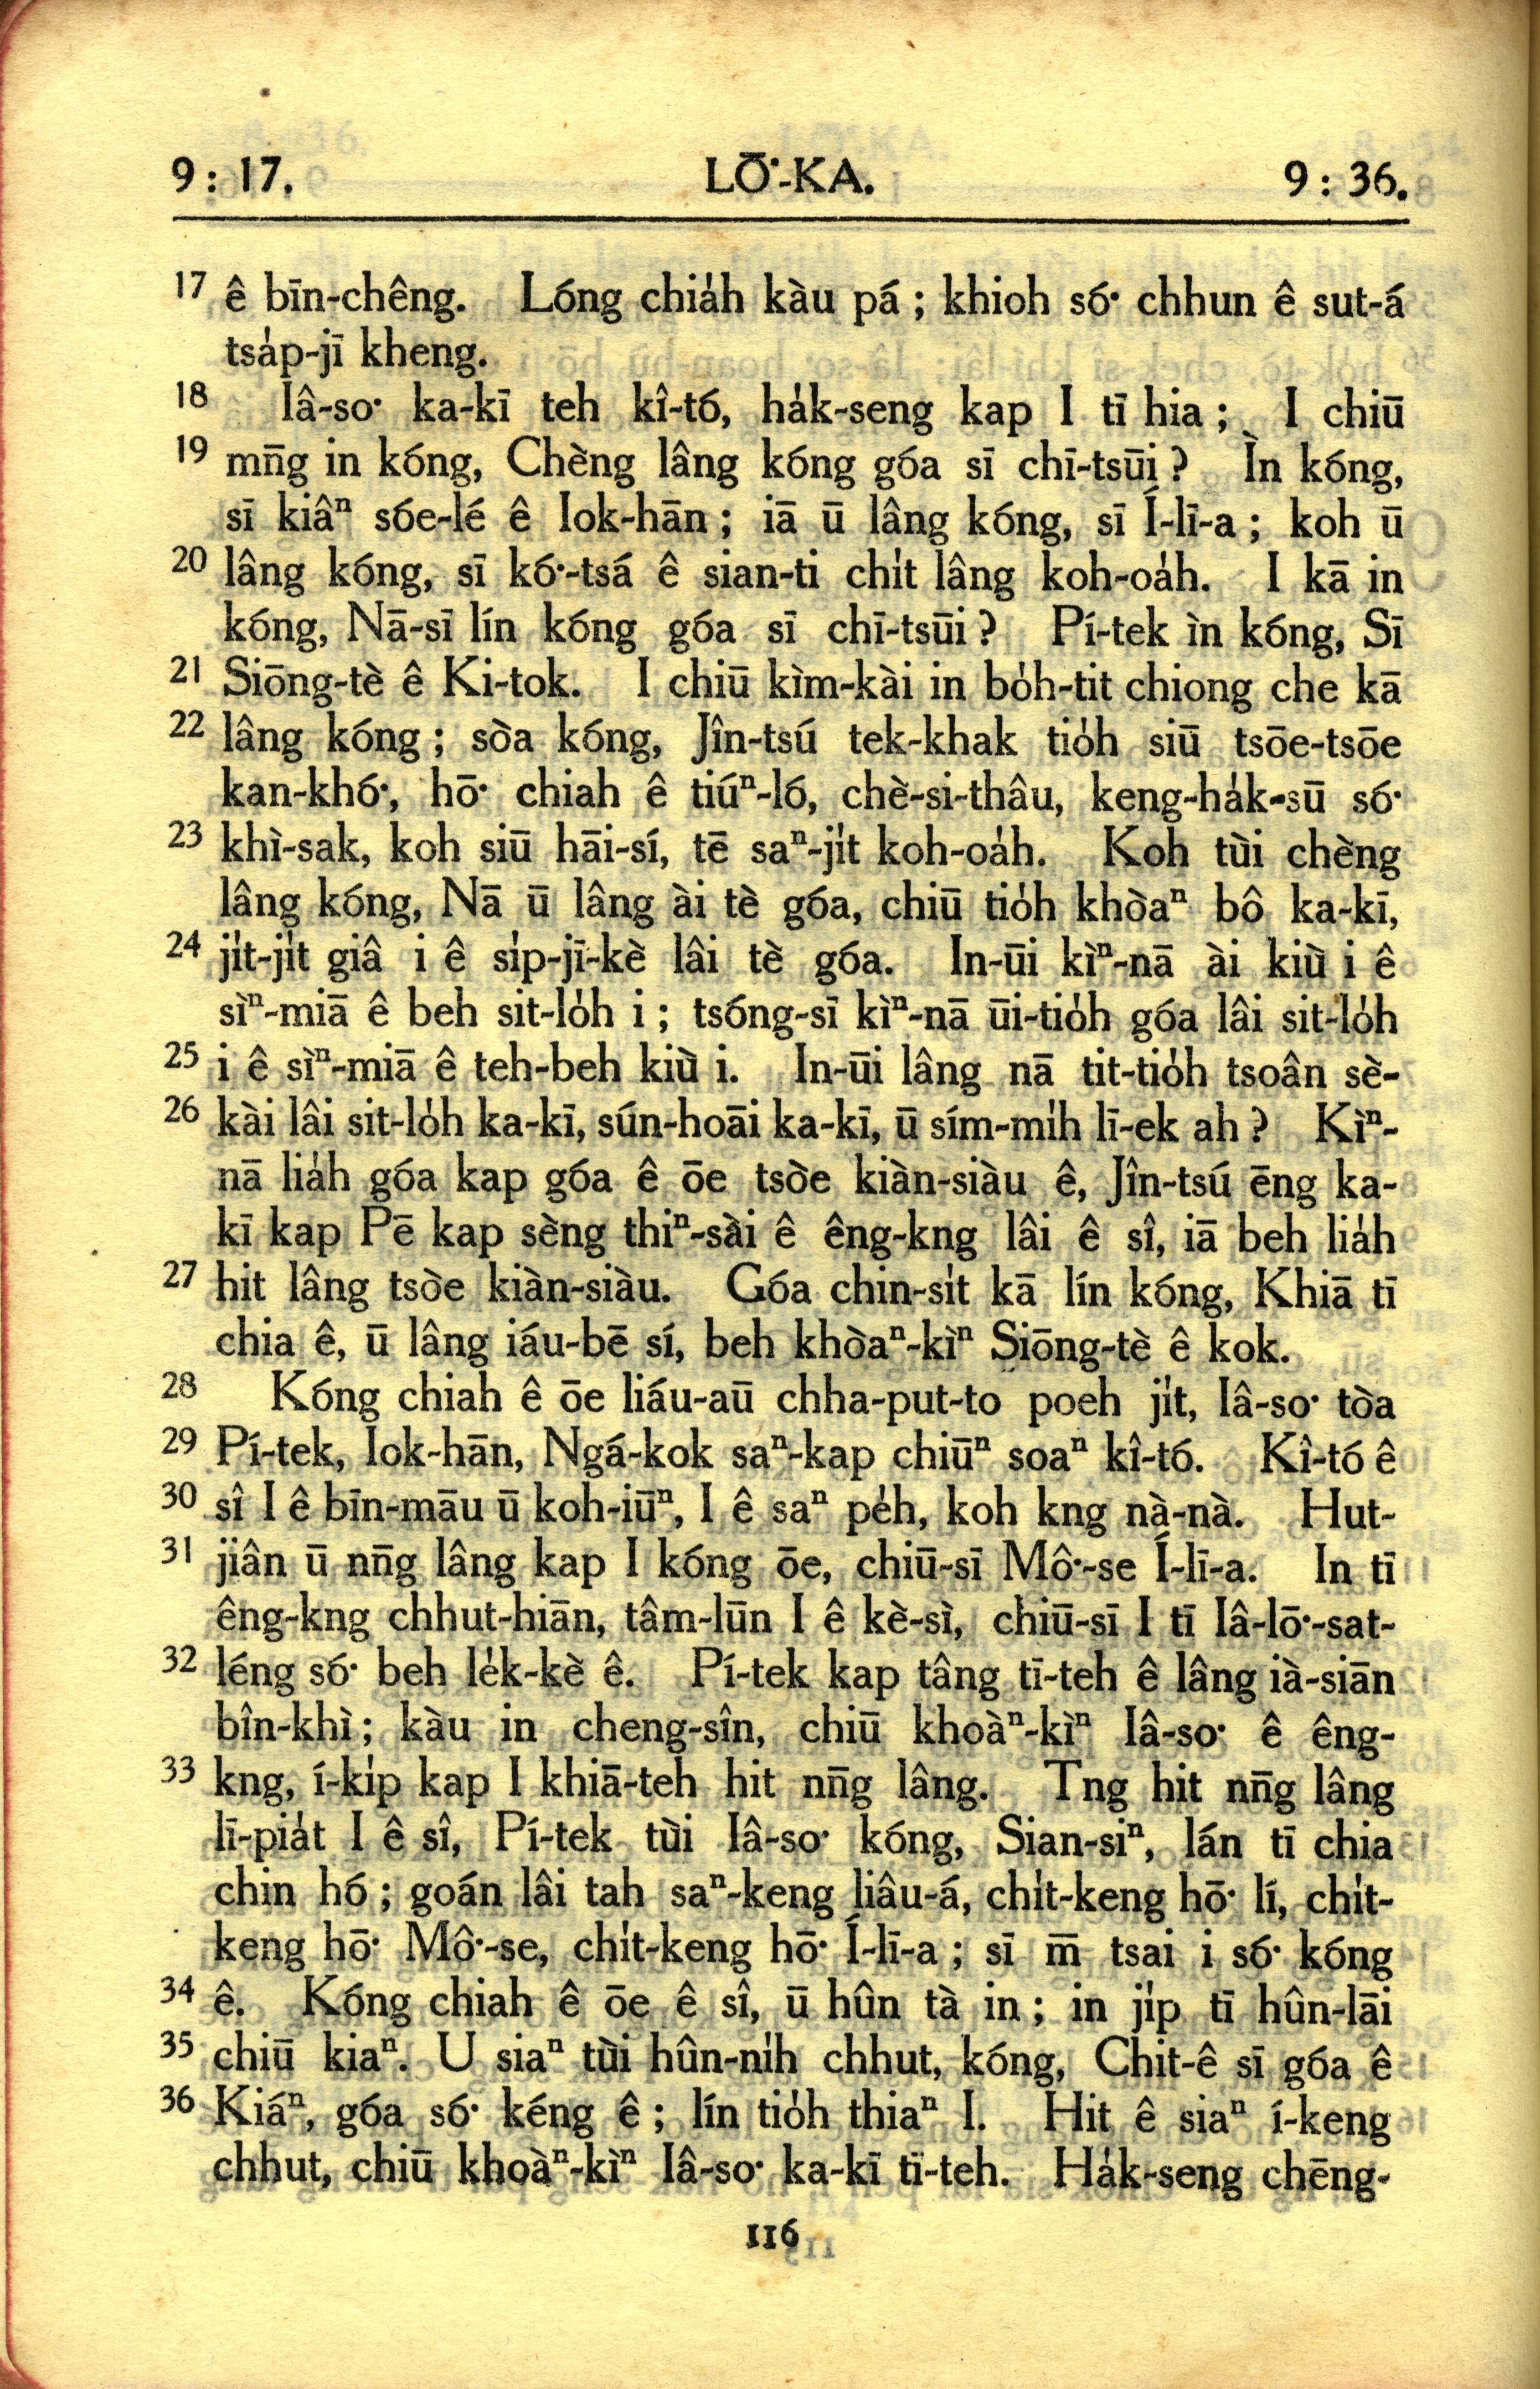 9 : 17. LŌ͘-KA. 9 : 36.
17 ê bīn-chêng. Lóng chia̍h kàu pá ; khioh só͘ chhun ê sut-á
tsa̍p-jī kheng.
18 Iâ-so͘ ka-kī teh kî-tó, ha̍k-seng kap I tī hia ; I chiū
19 mn̄g in kóng, Chèng lâng kóng góa sī chī-tsūi ? Ìn kóng,
sī kiâⁿ sóe-lé ê Iok-hān ; iā ū lâng kóng, sī Í-lī-a ; koh ū
20 lâng kóng, sī kó͘-tsá ê sian-ti chi̍t lâng koh-oa̍h. I kā in
kóng, Nā-sī lín kóng góa sī chī-tsūi ? Pí-tek ìn kóng, Sī
21 Siōng-tè ê Ki-tok. I chiū kìm-kài in bo̍h-tit chiong che kā
22 lâng kóng ; sòa kóng, Jîn-tsú tek-khak tio̍h siū tsōe-tsōe
kan-khó͘, hō͘ chiah ê tiúⁿ-ló, chè-si-thâu, keng-ha̍k-sū só͘
23 khì-sak, koh siū hāi-sí, tē saⁿ-ji̍t koh-oa̍h. Koh tùi chèng
lâng kóng, Nā ū lâng ài tè góa, chiū tio̍h khòaⁿ bô ka-kī,
24 ji̍t-ji̍t giâ i ê si̍p-jī-kè lâi tè góa. In-ūi kìⁿ-nā ài kiù i ê
sìⁿ-miā ê beh sit-lo̍h i ; tsóng-sī kìⁿ-nā ūi-tio̍h góa lâi sit-lo̍h
25 i ê sìⁿ-miā ê teh-beh kiù i. In-ūi lâng nā tit-tio̍h tsoân sè-
26 kài lâi sit-lo̍h ka-kī, sún-hoāi ka-kī, ū sím-mi̍h lī-ek ah ? Kìⁿ-
nā lia̍h góa kap góa ê ōe tsòe kiàn-siàu ê, Jîn-tsú ēng ka-
kī kap Pē kap sèng thiⁿ-sài ê êng-kng lâi ê sî, iā beh lia̍h
27 hit lâng tsòe kiàn-siàu. Góa chin-si̍t kā lín kóng, Khiā tī
chia ê, ū lâng iáu-bē sí, beh khòaⁿ-kìⁿ Siōng-tè ê kok.
28 Kóng chiah ê ōe liáu-aū chha-put-to poeh ji̍t, Iâ-so͘ tòa
29 Pí-tek, Iok-hān, Ngá-kok saⁿ-kap chiūⁿ soaⁿ kî-tó. Kî-tó ê
30 sî I ê bīn-māu ū koh-iūⁿ, I ê saⁿ pe̍h, koh kng nà-nà. Hut-
31 jiân ū nn̄g lâng kap I kóng ōe, chiū-sī Mô͘-se Í-lī-a. In tī
êng-kng chhut-hiān, tâm-lūn I ê kè-sì, chiū-sī I tī Iâ-lō͘-sat-
32 léng só͘ beh le̍k-kè ê. Pí-tek kap tâng tī-teh ê lâng ià-siān
bîn-khì ; kàu in cheng-sîn, chiū khoàⁿ-kìⁿ Iâ-so͘ ê êng-
33 kng, í-ki̍p kap I khiā-teh hit nn̄g lâng. Tng hit nn̄g lâng
lī-pia̍t I ê sî, Pí-tek tùi Iâ-so͘ kóng, Sian-siⁿ, lán tī chia
chin hó ; goán lâi tah saⁿ-keng liâu-á, chi̍t-keng hō͘ lí, chi̍t-
keng hō͘ Mô͘-se, chi̍t-keng hō͘ Í-lī-a ; sī m̄ tsai i só͘ kóng
34 ê. Kóng chiah ê ōe ê sî, ū hûn tà in ; in ji̍p tī hûn-lāi
35 chiū kiaⁿ. U siaⁿ tùi hûn-ni̍h chhut, kóng, Chit-ê sī góa ê
36 Kiáⁿ, góa só͘ kéng ê ; lín tio̍h thiaⁿ I. Hit ê siaⁿ í-keng
chhut, chiū khoàⁿ-kìⁿ Iâ-so͘ ka-kī tī-teh. Ha̍k-seng chēng-
116